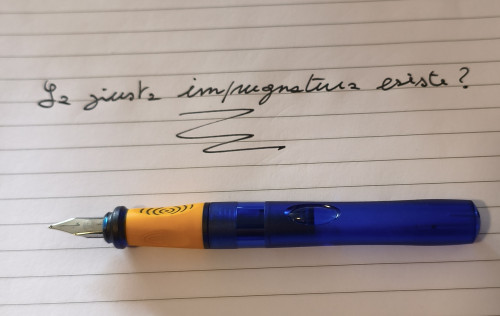 La giusta impugnatura esiste?